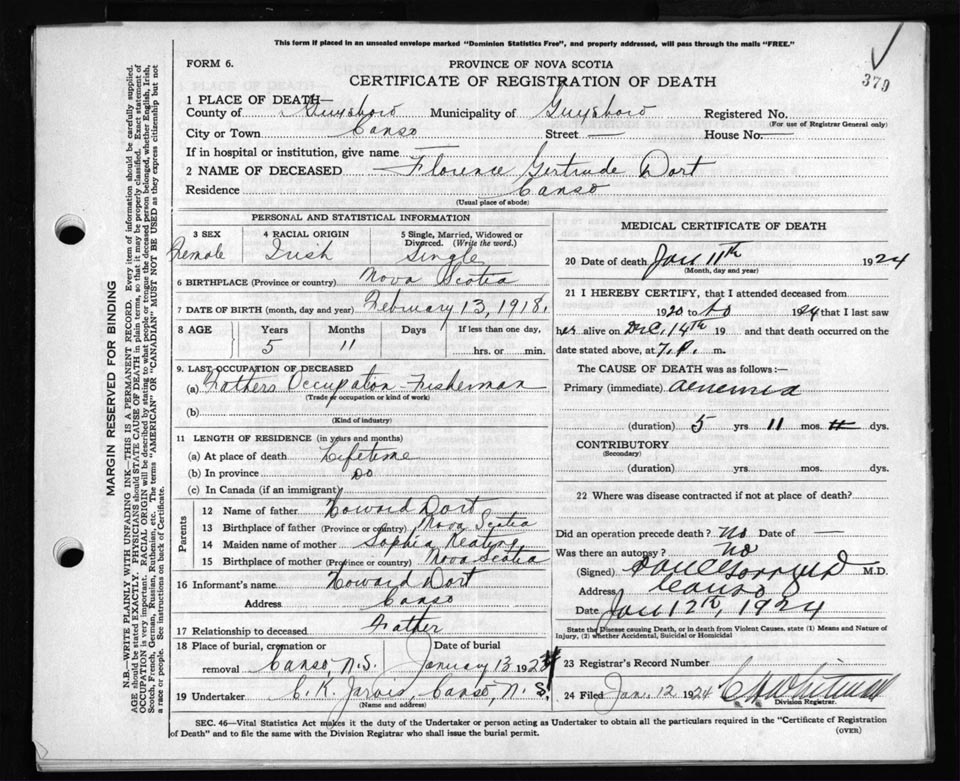 This form if placed in an unsealed envelope marked "Dominion Statistics Free", and properly addressed, will pass through the mails "FREE."
379
FORM 6.
PROVINCE OF NOVA SCOTIA
CERTIFICATE OF REGISTRATION OF DEATH
1 PLACE OF DEATH—
County of Guysboro Municipality of Guysboro Registered No.
(For use of Registrar General only)
City or Town Canso Street — House No. —
If in hospital or institution, give name —
2 NAME OF DECEASED Florence Gertrude Dort
Residence Canso
(Usual place of abode)
PERSONAL AND STATISTICAL INFORMATION
3 SEX 4 RACIAL ORIGIN 5 Single, Married, Widowed or Divorced. (Write the word.)
Female Irish Single
6 BIRTHPLACE (Province or country) Nova Scotia
7 DATE OF BIRTH (month, day and year) February 13, 1918.
8 AGE Years Months Days If less than one day,
5 11 hrs. or min.
9. LAST OCCUPATION OF DECEASED
(a) Fathers Occupation - Fisherman
(Trade or occupation or kind of work)
(b)
(Kind of industry)
11 LENGTH OF RESIDENCE (in years and months)
(a) At place of death Lifetime
(b) In province Do
(c) In Canada (if an immigrant)
Parents
12 Name of father Howard Dort
13 Birthplace of father (Province or country) Nova Scotia
14 Maiden name of mother Sophia Keating
15 Birthplace of mother (Province or country) Nova Scotia
16 Informant's name Howard Dort
Address Canso
17 Relationship to deceased Father
18 Place of burial, cremation or Date of burial
removal Canso N.S. January 13 1924
19 Undertaker C. K. Jarvis, Canso, N. S.
(Name and address)
MEDICAL CERTIFICATE OF DEATH
20 Date of death Jan 11th 1924
(Month, day and year)
21 I HEREBY CERTIFY, that I attended deceased from
1920 to 1924 that I last saw
her alive on Dec. 14th 19 and that death occurred on
date stated above, at 7. P. m.
The CAUSE OF DEATH was as follows:—
Primary (immediate)
(duration) 5 yrs 11 mos. dys.
CONTRIBUTORY
(Secondary)
(duration) yrs. mos. dys.
22 Where was disease contracted if not at place of death?
Did an operation precede death? No Date of —
Was there an autopsy? No
(Signed) M.D.
Address Canso
Date Jan 12th, 1924
State the Disease causing Death, or in death from Violent Causes, state (1) Means and Nature of
Injury, (2) whether Accidental, Suicidal or Homicidal
23 Registrar's Record Number
24 Filed Jan. 12 1924
Division Registrar.
SEC. 46—Vital Statistics Act makes it the duty of the Undertaker or person acting as Undertaker to obtain all the particulars required in the "Certificate of Registration
of Death" and to file the same with the Division Registrar who shall issue the burial permit.
(OVER)
MARGIN RESERVED FOR BINDING
N.B.—WRITE PLAINLY WITH UNFADING INK—THIS IS A PERMANENT RECORD. Every item of information should be carefully supplied.
AGE should be stated EXACTLY. PHYSICIANS should STATE CAUSE OF DEATH in plain terms, so that it may be properly classified. Exact statement of
OCCUPATION is very important. RACIAL ORIGIN will be described by stating to what people or tongue the deceased person belonged, whether English, Irish,
Scotch, French, German, Russian, Ruthenian, etc. The terms "AMERICAN" OR "CANADIAN" MUST NOT BE USED as they express citizenship but not
a race or people. See instructions on back of Certificate.